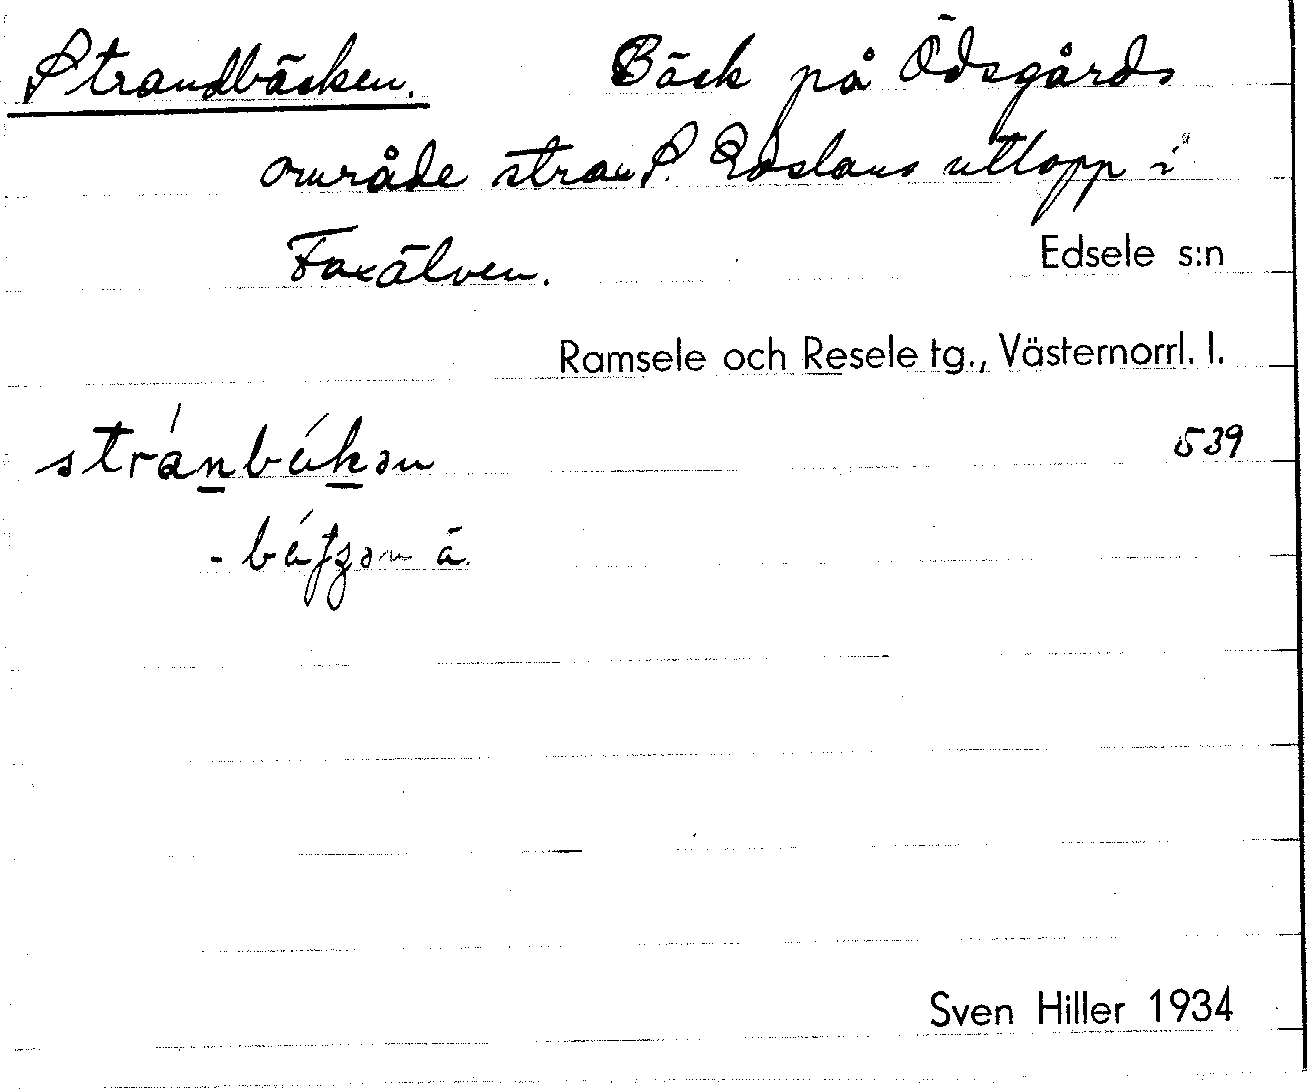 Strandbäcken. Bäck på Ödsgårds
område strax S. Edslans utlopp i
Faxälven. Edsele s:n
Ramsele och Resele tg., Västernorrl. l.
539
Sven Hiller 1934